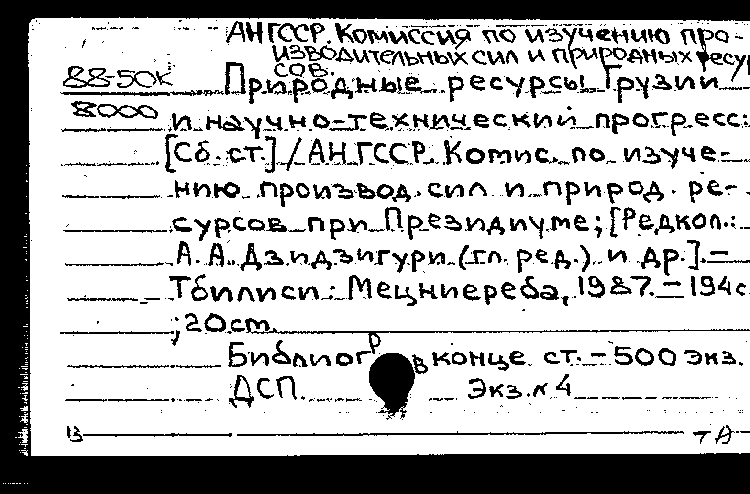 АН ГССР. Комиссия по изучению про-
изводительных сил и природных ресур
сов.
88-50К Природные ресурсы Грузии
8000 и научно-технический прогресс:
[Сб. ст.] / АН ГССР. Комис. по изуче-
нию производ. сил и природ. ре-
сурсов при Президиуме; [Редкол.:
А. А. Дзидзигури (гл. ред.) и др.]. –
Тбилиси: Мецниереба, 1987. – 194 с
; 20 ст.
Библиогр в конце ст. – 500 экз.
ДСП. Экз. N 4
В т А